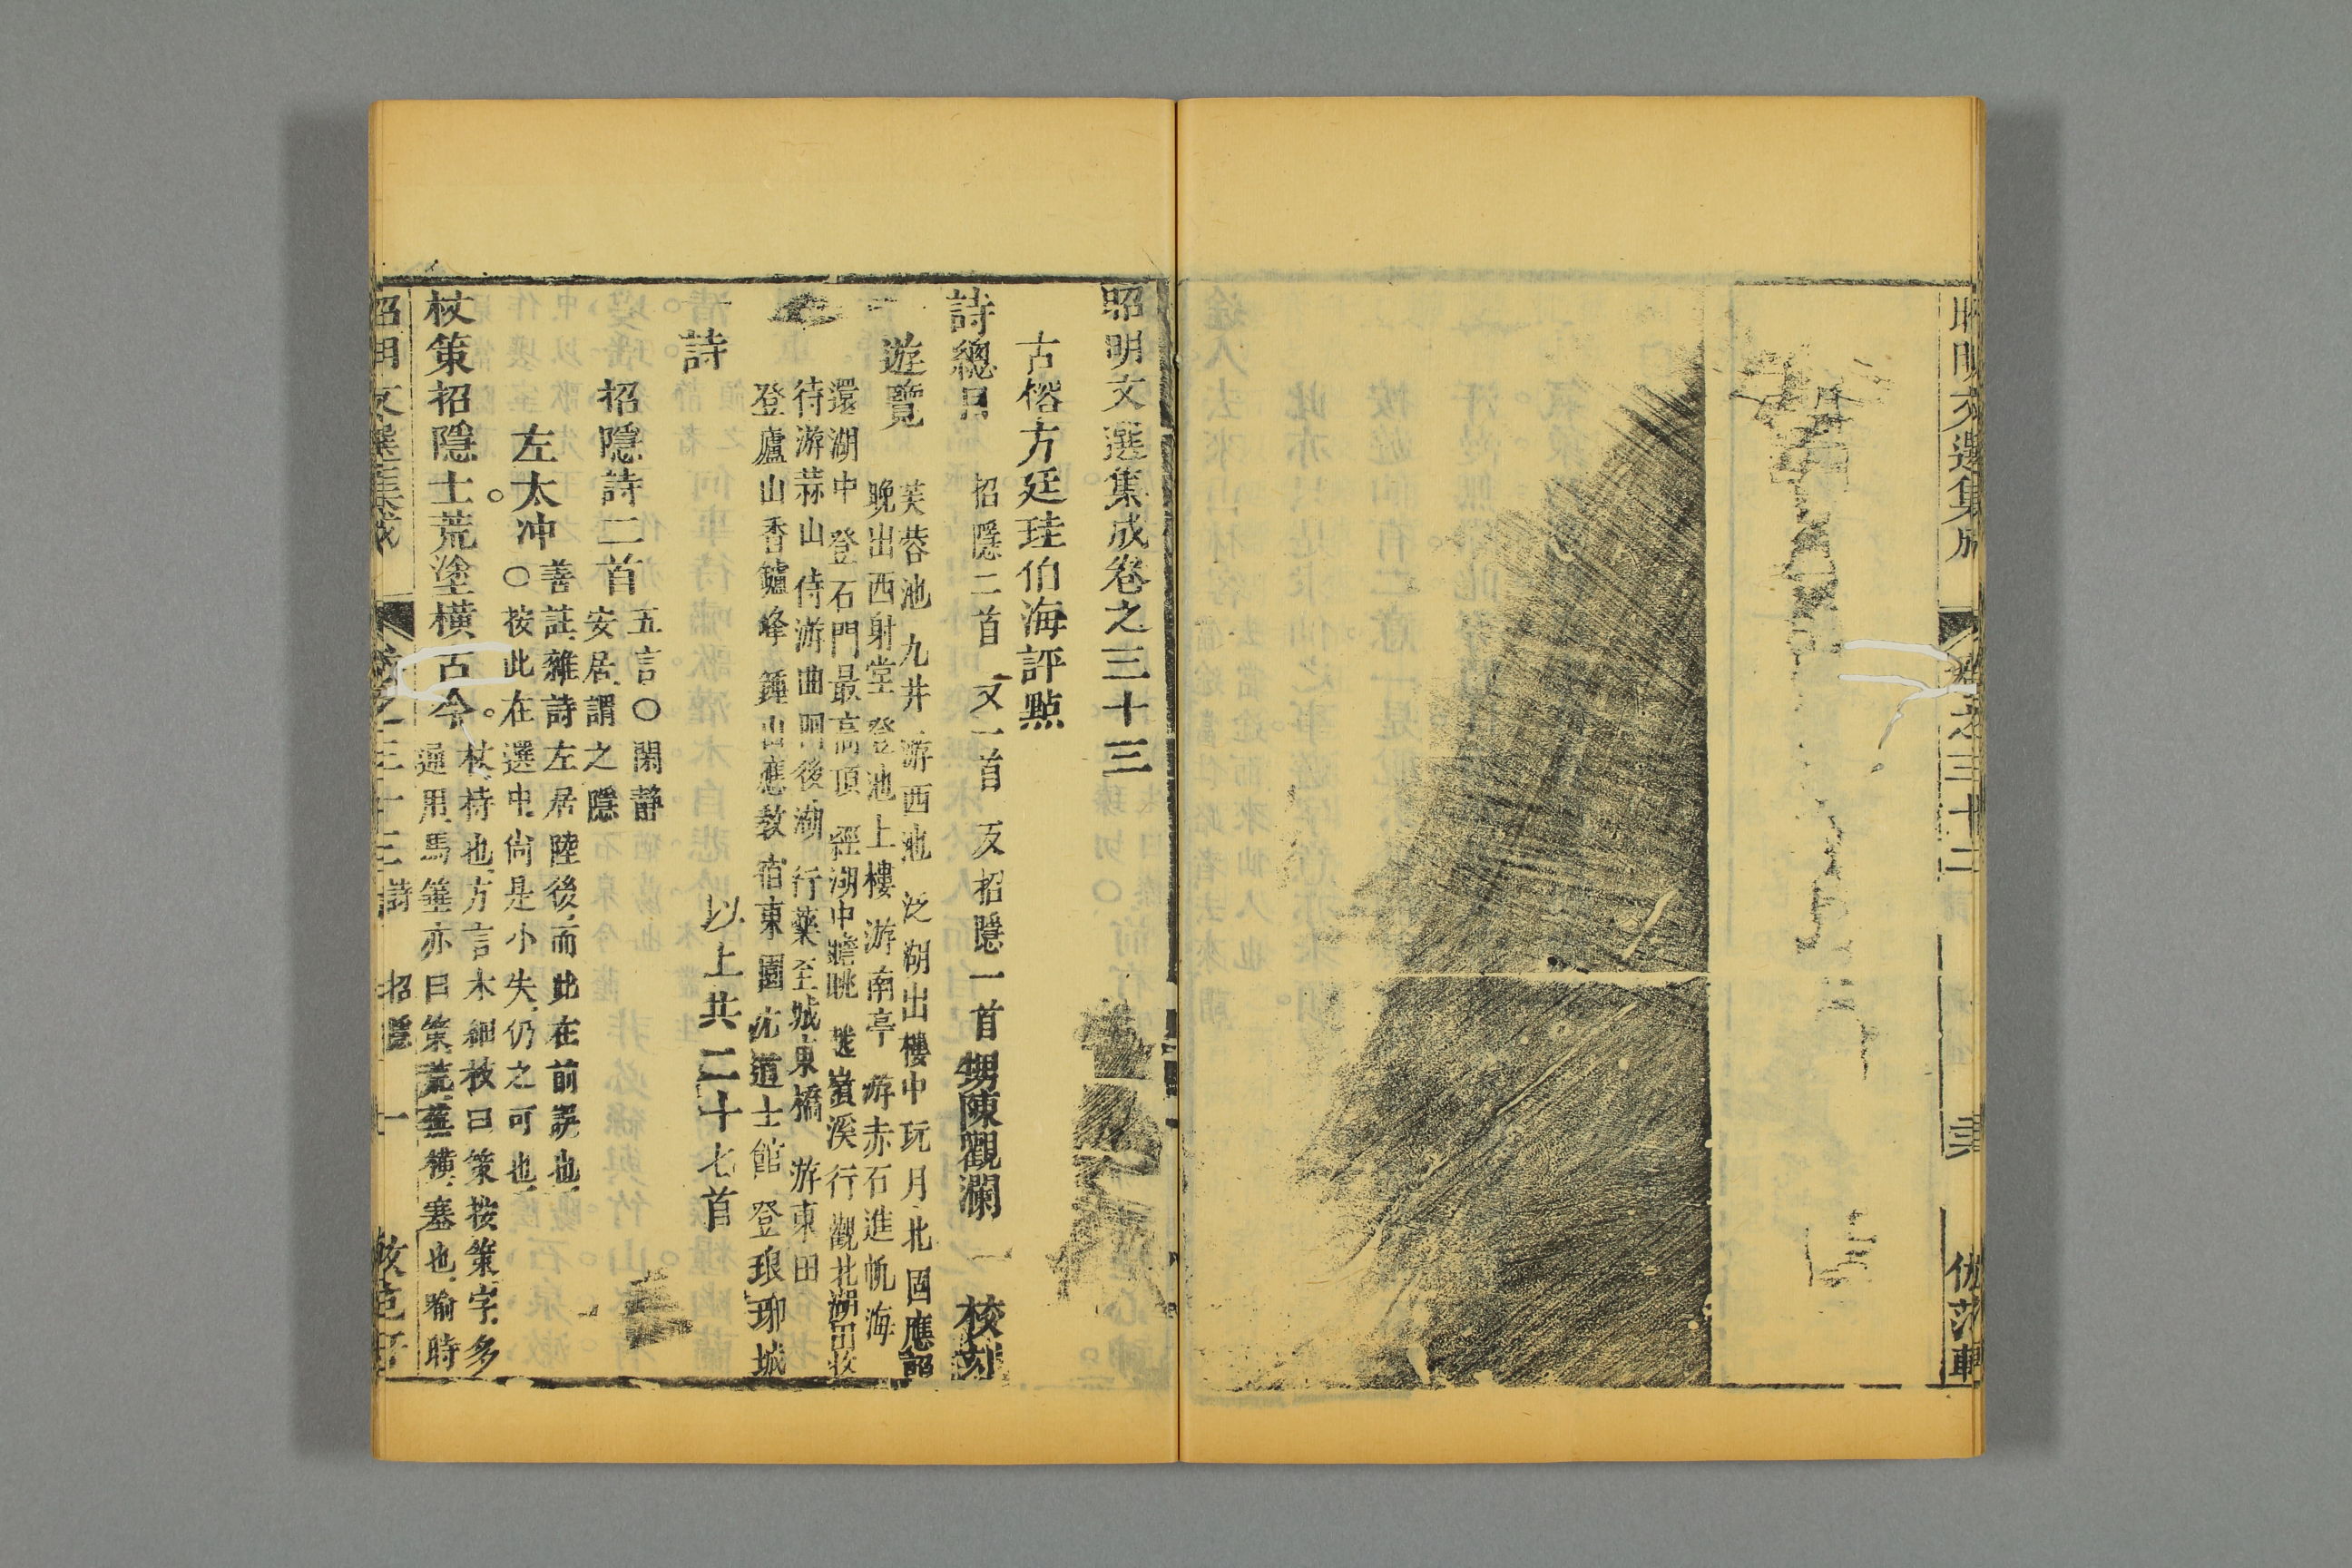 昭明文選集成
卷之三十二
仿范軒
昭明文選集成卷之三十三
古榕方廷珪伯海評點
詩總目 招隱二首 又一首 反招隱一首 甥陳觀瀾 校刻
遊覽 芙蓉池 九井 游西池 泛湖出樓中玩月 北固應詔
晚出西射堂 登池上樓 游南亭 游赤石進帆海
還湖中 登石門最高頂 經湖中瞻眺 從嶺溪行 觀北湖田收
待游蒜山 侍游曲阿後湖 行藥至城東橋 游東田
登廬山香鑪峰 鍾山應教 宿東園 沈道士館 登琅琊城
以上共二十七首
詩
招隱詩二首 五言○閑靜
安居謂之隱
左太冲 善註雜詩左居陸後而此在前誤也
○按此在選中尙是小失仍之可也
杖策招隱士荒塗橫古今 杖持也方言木細枝曰策按策字多
通用馬箠亦曰策荒蕪橫塞也喻時
昭明文選集成 卷之三十三 詩 招隱 一 仿范軒